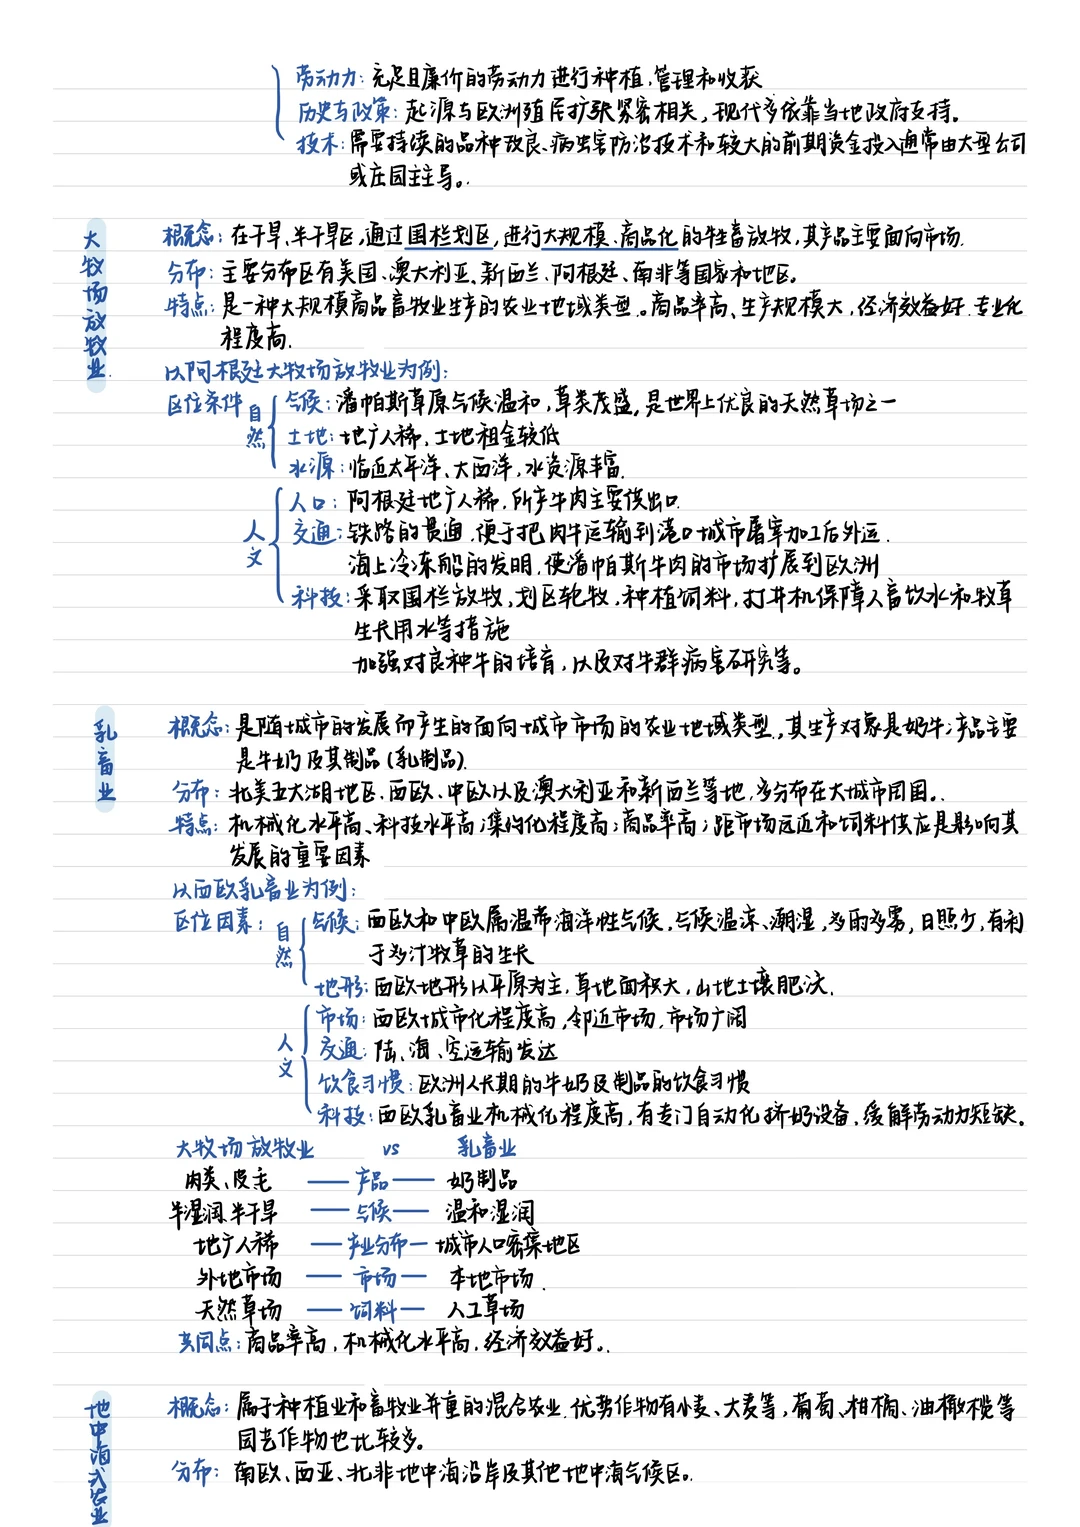 劳动力：充足且廉价的劳动力进行种植、管理和收获
历史与政策：起源与欧洲殖民扩张紧密相关，现代多依靠当地政府支持。
技术：需要持续的品种改良、病虫害防治技术和较大的前期资金投入通常由大型公司
或庄园主主导。
大牧场放牧业
概念：在干旱、半干旱区，通过围栏划区，进行大规模、商品化的牲畜放牧，其产品主要面向市场.
分布：主要分布区有美国、澳大利亚、新西兰、阿根廷、南非等国家和地区。
特点：是一种大规模商品畜牧业生产的农业地域类型。商品率高、生产规模大，经济效益好.专业化
程度高.
以阿根廷大牧场放牧业为例：
区位条件
自然
气候：潘帕斯草原气候温和，草类茂盛，是世界上优良的天然草场之一
土地：地广人稀，土地租金较低
水源：临近太平洋、大西洋，水资源丰富.
人文
人口：阿根廷地广人稀，所产牛肉主要供出口.
交通：铁路的贯通，便于把肉牛运输到港口城市屠宰加工后外运.
海上冷冻船的发明，使潘帕斯牛肉的市场扩展到欧洲
科技：采取围栏放牧，划区轮牧，种植饲料，打井机保障人畜饮水和牧草
生长用水等措施
加强对良种牛的培育，以及对牛群病害研究等。
乳畜业
概念：是随城市的发展而产生的面向城市市场的农业地域类型，其生产对象是奶牛；产品主要
是牛奶及其制品（乳制品）.
分布：北美五大湖地区、西欧、中欧以及澳大利亚和新西兰等地，多分布在大城市周围。
特点：机械化水平高、科技水平高；集约化程度高；商品率高；距市场远近和饲料供应是影响其
发展的重要因素
以西欧乳畜业为例：
区位因素：
自然
气候：西欧和中欧属温带海洋性气候，气候温凉、潮湿，多雨多雾，日照少，有利
于多汁牧草的生长
地形：西欧地形以平原为主，草地面积大，山地土壤肥沃.
人文
市场：西欧城市化程度高，邻近市场，市场广阔
交通：陆、海、空运输发达
饮食习惯：欧洲人长期的牛奶及制品的饮食习惯
科技：西欧乳畜业机械化程度高，有专门自动化挤奶设备，缓解劳动力短缺。
大牧场放牧业 vs 乳畜业
肉类、皮毛 —产品— 奶制品
半湿润、半干旱 —气候— 温和湿润
地广人稀 —产业分布— 城市人口密集地区
外地市场 —市场— 本地市场.
天然草场 —饲料— 人工草场
共同点：商品率高，机械化水平高，经济效益好。
地中海式农业
概念：属于种植业和畜牧业并重的混合农业.优势作物有小麦、大麦等，葡萄、柑橘、油橄榄等
园艺作物也比较多。
分布：南欧、西亚、北非地中海沿岸及其他地中海气候区。